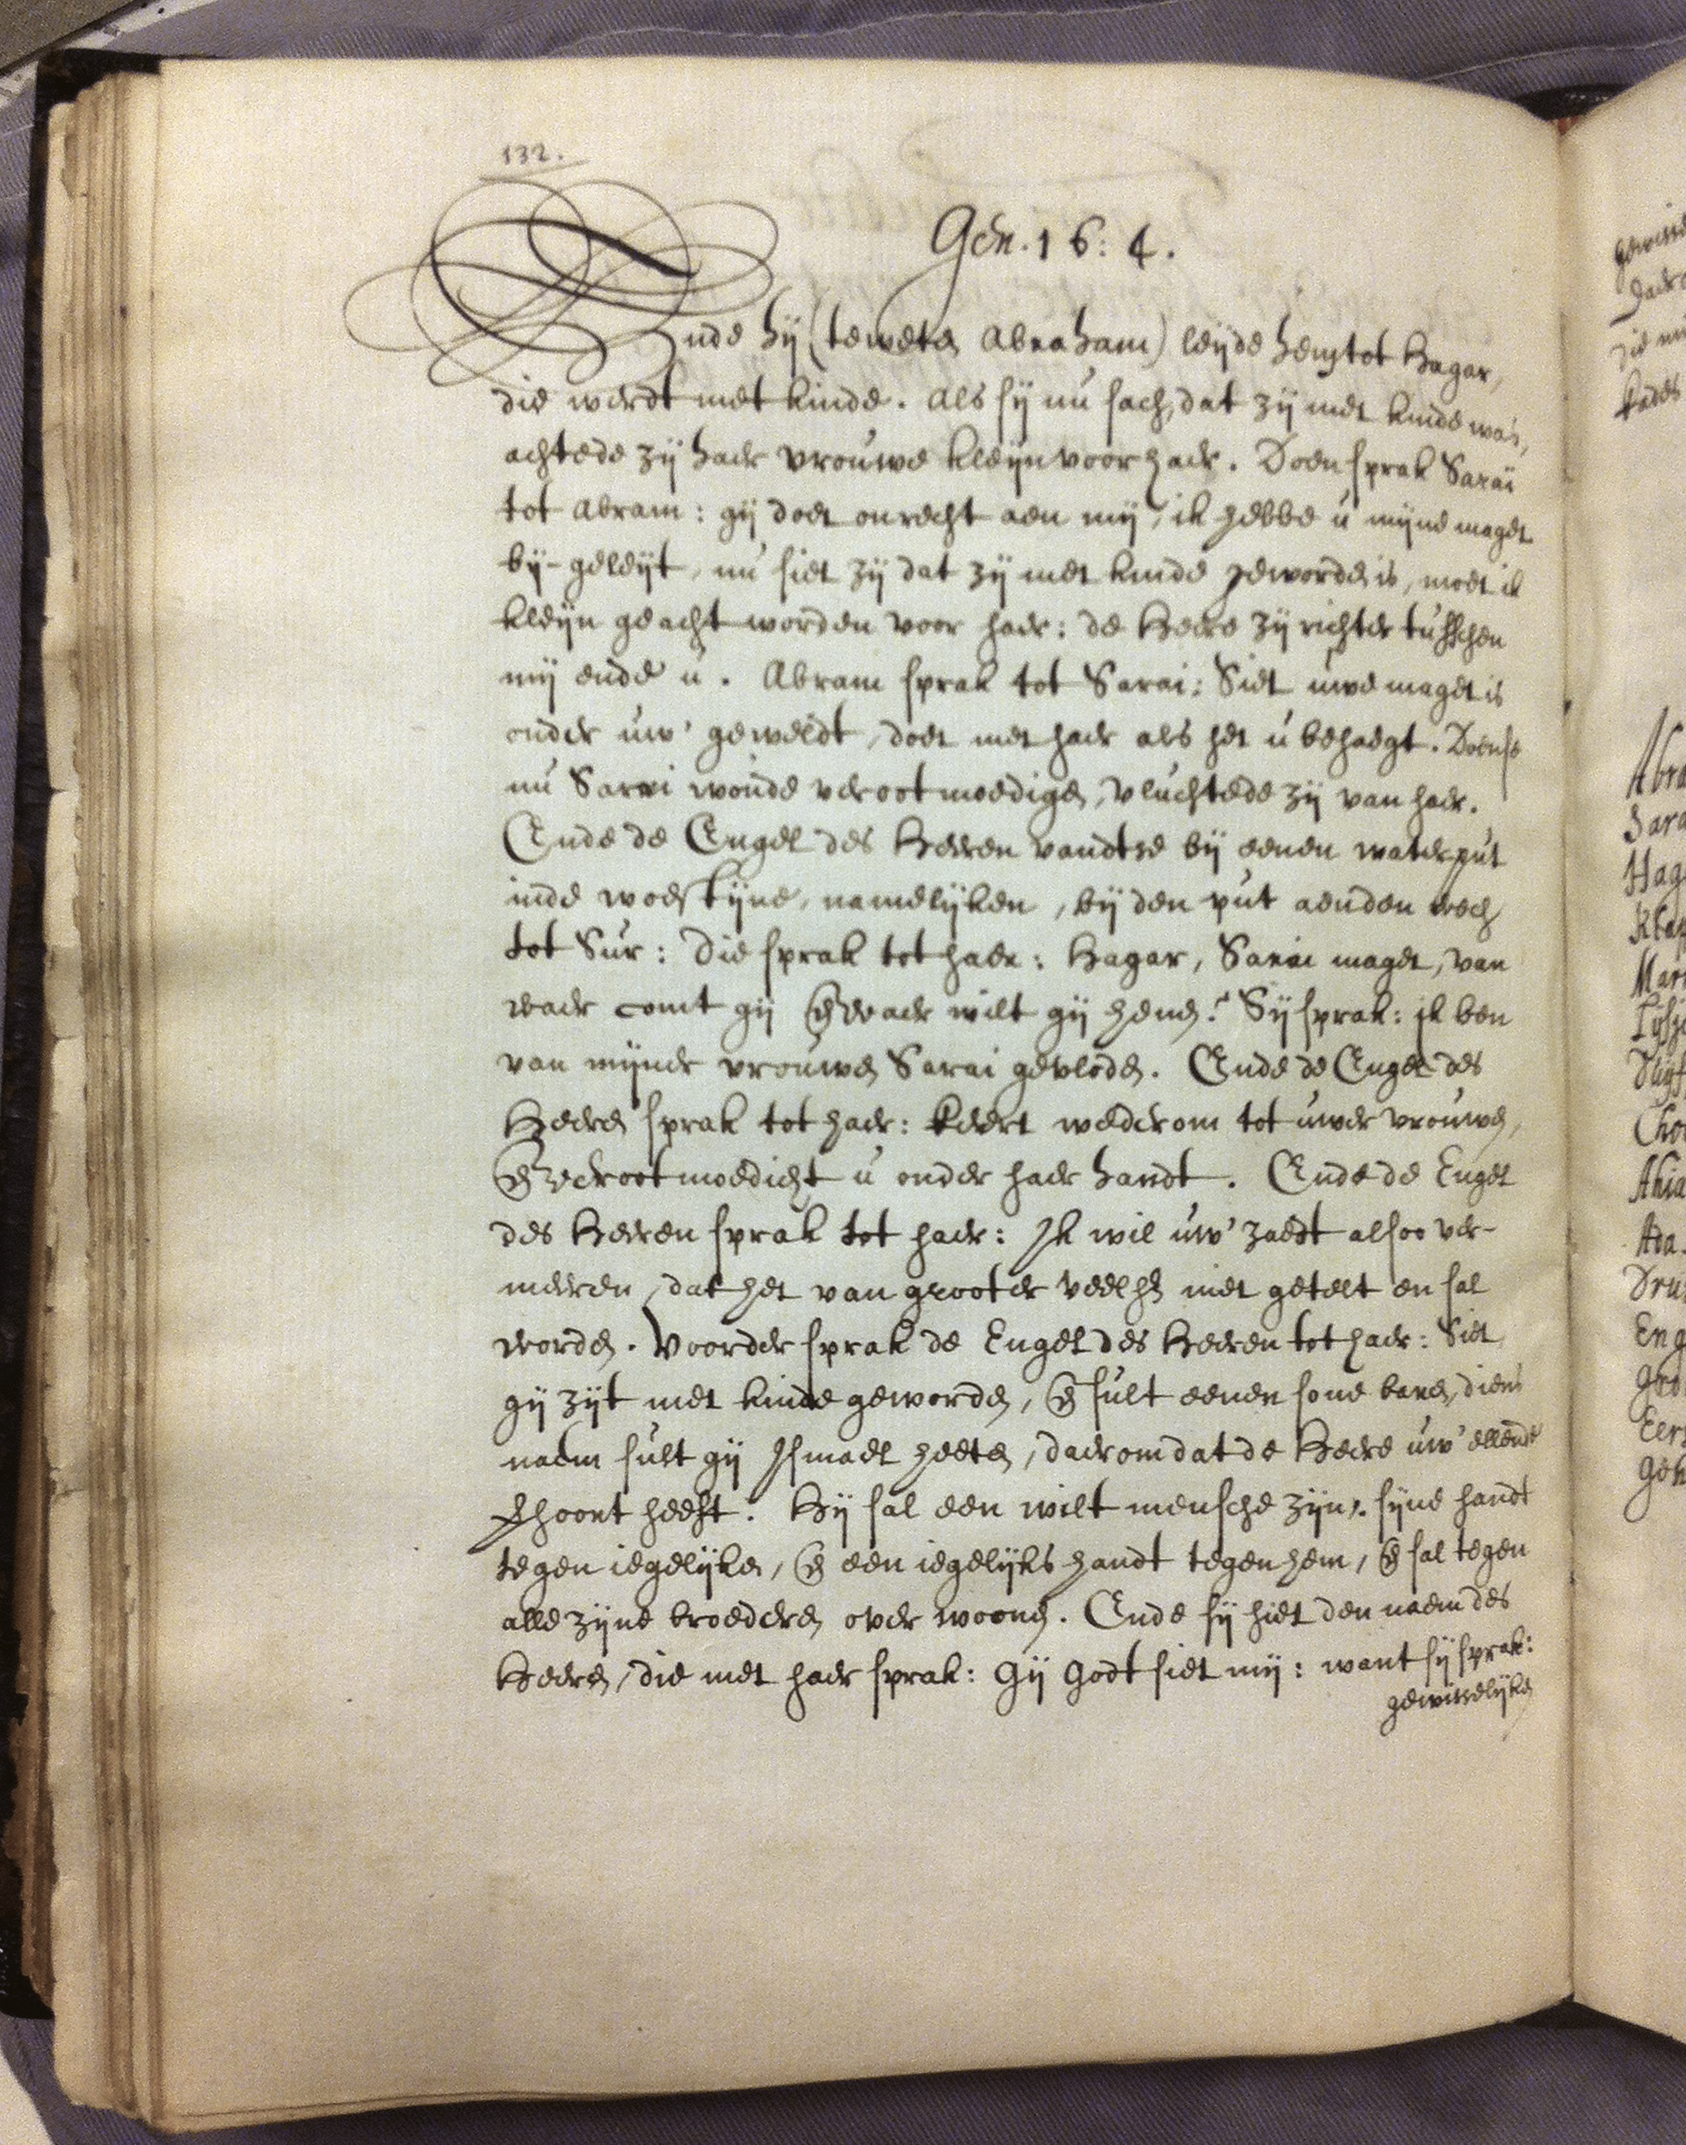 132.
Gen. 16: 4.
Ende hij (teweten Abraham) leijde hem tot Hagar,
die werdt met kinde. Als sij nu sach, dat zij met kinde was,
achtede zij haer vrouwe kleijn voor haer. Doen sprak Sarai
tot Abram: gij doet onrecht aen mij, ik hebbe u mijne maget
bij-geleijt, nu siet zij dat zij met kinde geworden is, moet ik
kleijn geacht worden voor haer: de Heere zij richter tusschen
mij ende u. Abram sprak tot Sarai: Siet uwe maget is
onder uw' geweldt, doet met haer als het u behaegt. Doense
nu Sarai woude verootmoedigen, vluchtede zij van haer.
Ende de Engel des Heeren vandtse bij eenen waterput
inde woestijne, namelijken, bij den put aenden wech
tot Sur: Die sprak tot haer: Hagar, Sarai maget, van
waer comt gij en waer wilt gij henen? Sij sprak: ik ben
van mijner vrouwen Sarai gevloden. Ende de Engel des
Heeren sprak tot haer: keert wederom tot uwer vrouwen,
en verootmoedicht u onder haer handt. Ende de Engel
des Heeren sprak tot haer: Ik wil uw' zaedt alsoo ver-
meeren, dat het van grooter veelht niet getelt en sal
worden. Voorder sprak de Engel des Heeren tot haer: Siet
gij zijt met kinde geworden, en sult eenen sone baren, diens
naem sult gij Ismael heeten, daerom dat de Heere uw' ellende
ghoort heeft. Hij sal een wilt mensche zijn, sijne handt
tegen iegelijken, en een iegelijks handt tegen hem, en sal tegen
alle zijne broederen over woonen. Ende sij hiet den naem des
Heeren, die met haer sprak: Gij Godt siet mij: want sij sprak:
gewisselijken
Abra
Sara
Hag
Mar
Ada
Dru
Eng